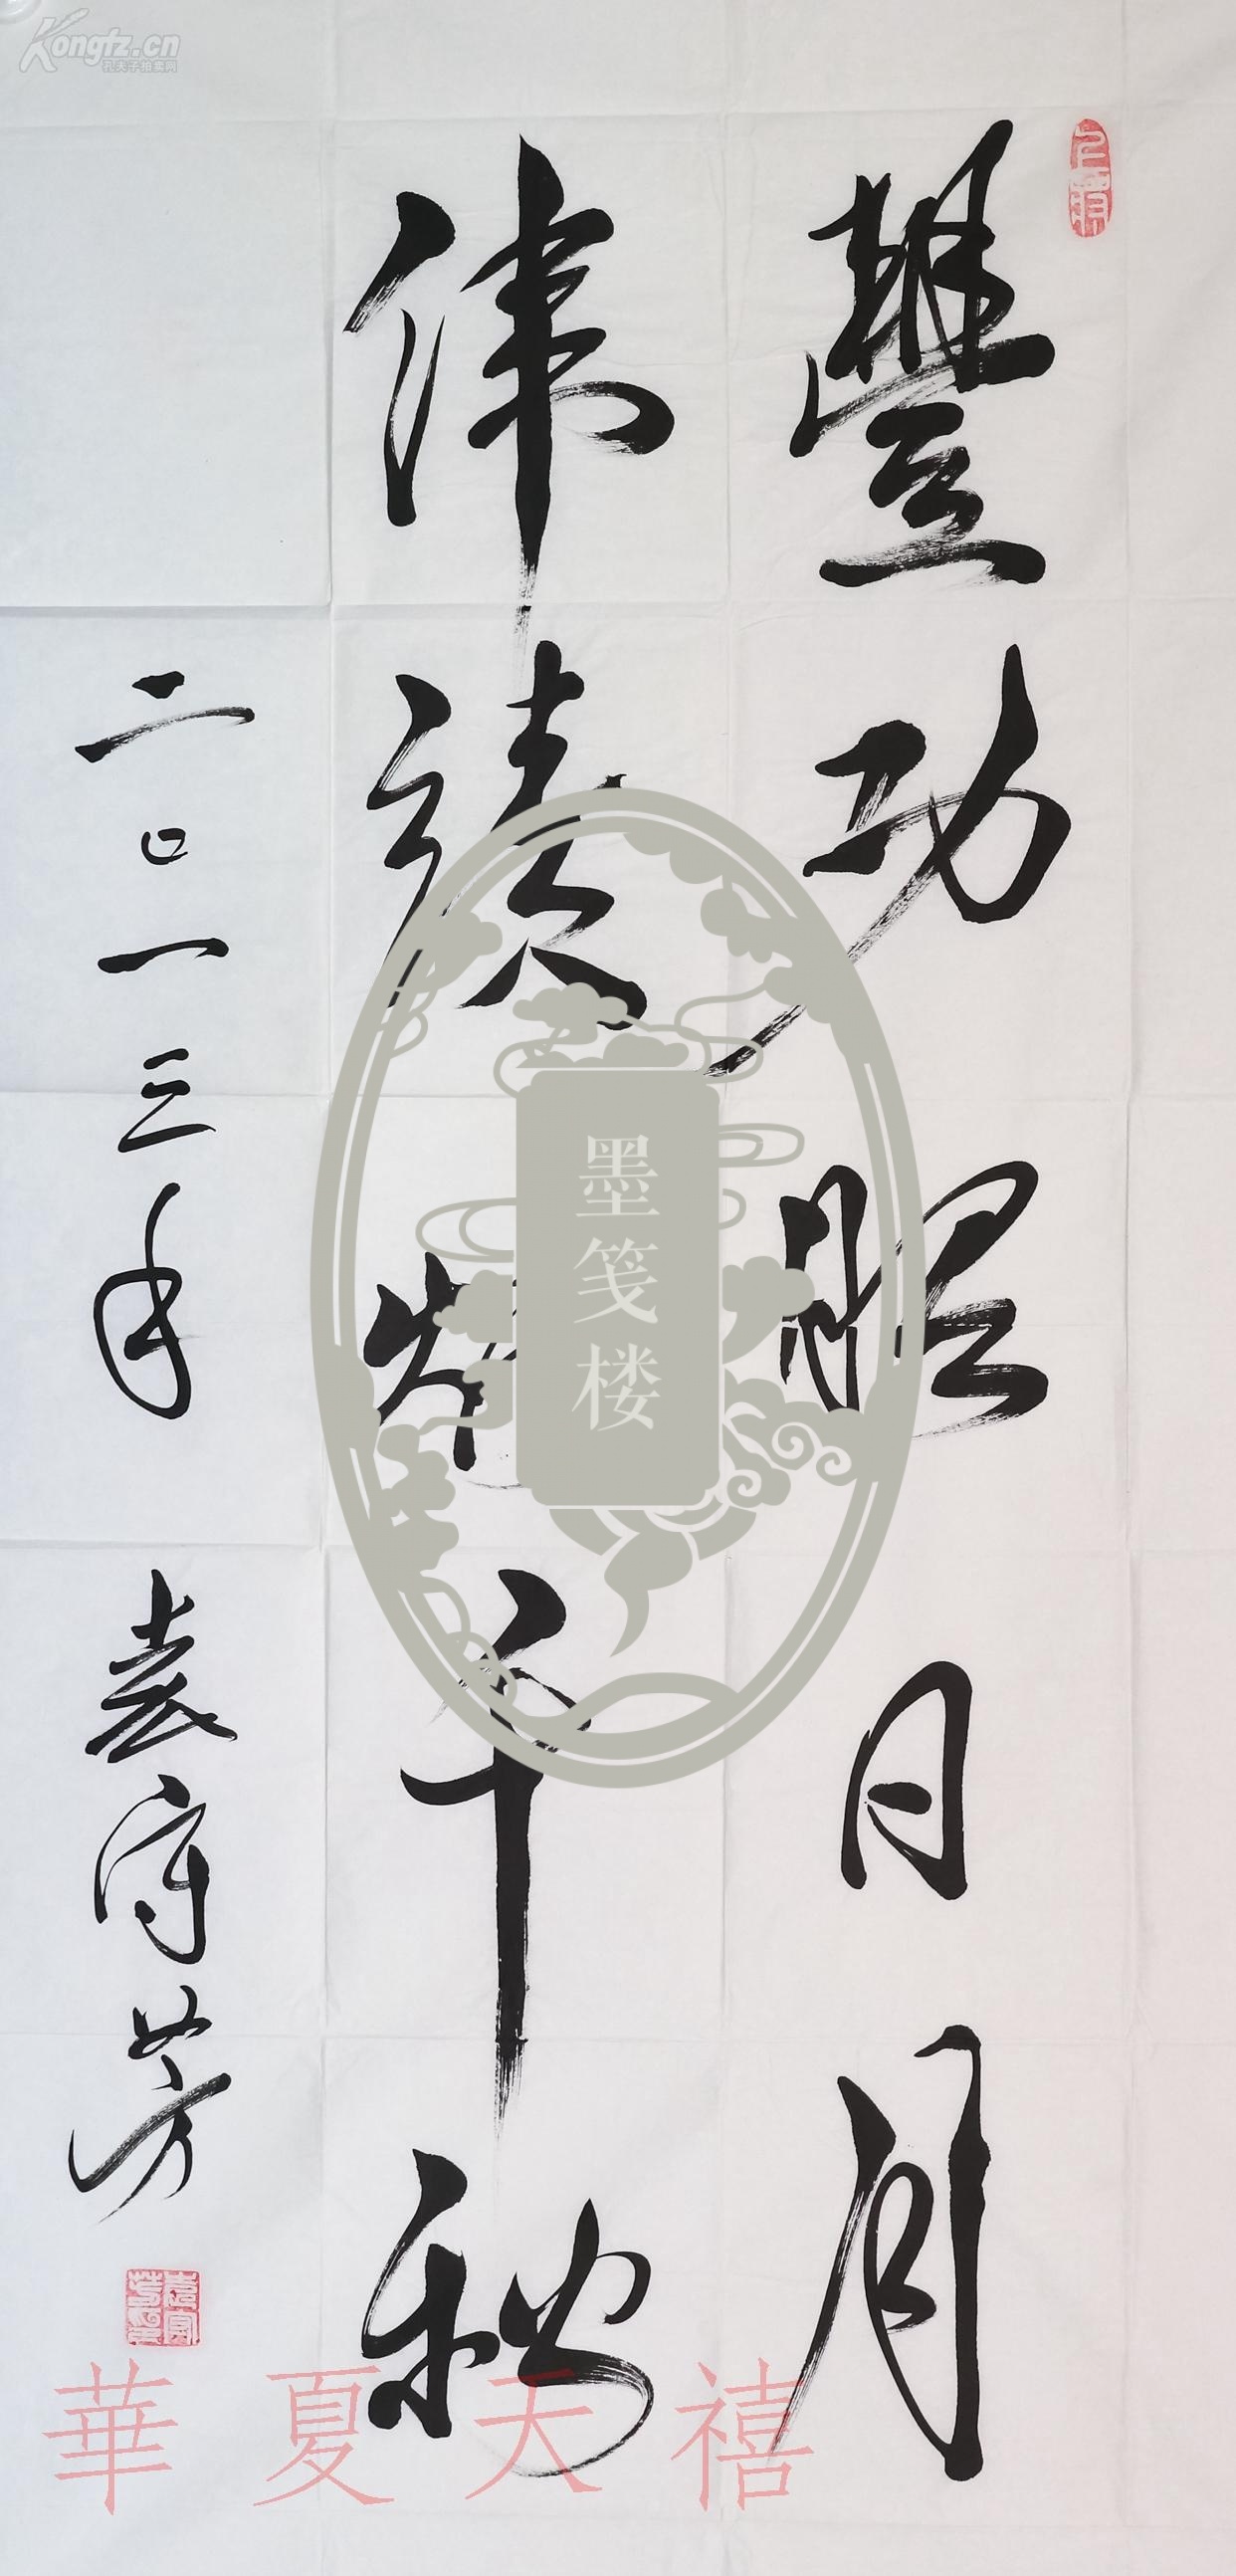 豐功昭日月
偉績耀千秋
二〇一三年 袁守芳
墨笺楼
華夏天禧
Kongfz.cn
孔夫子拍卖网